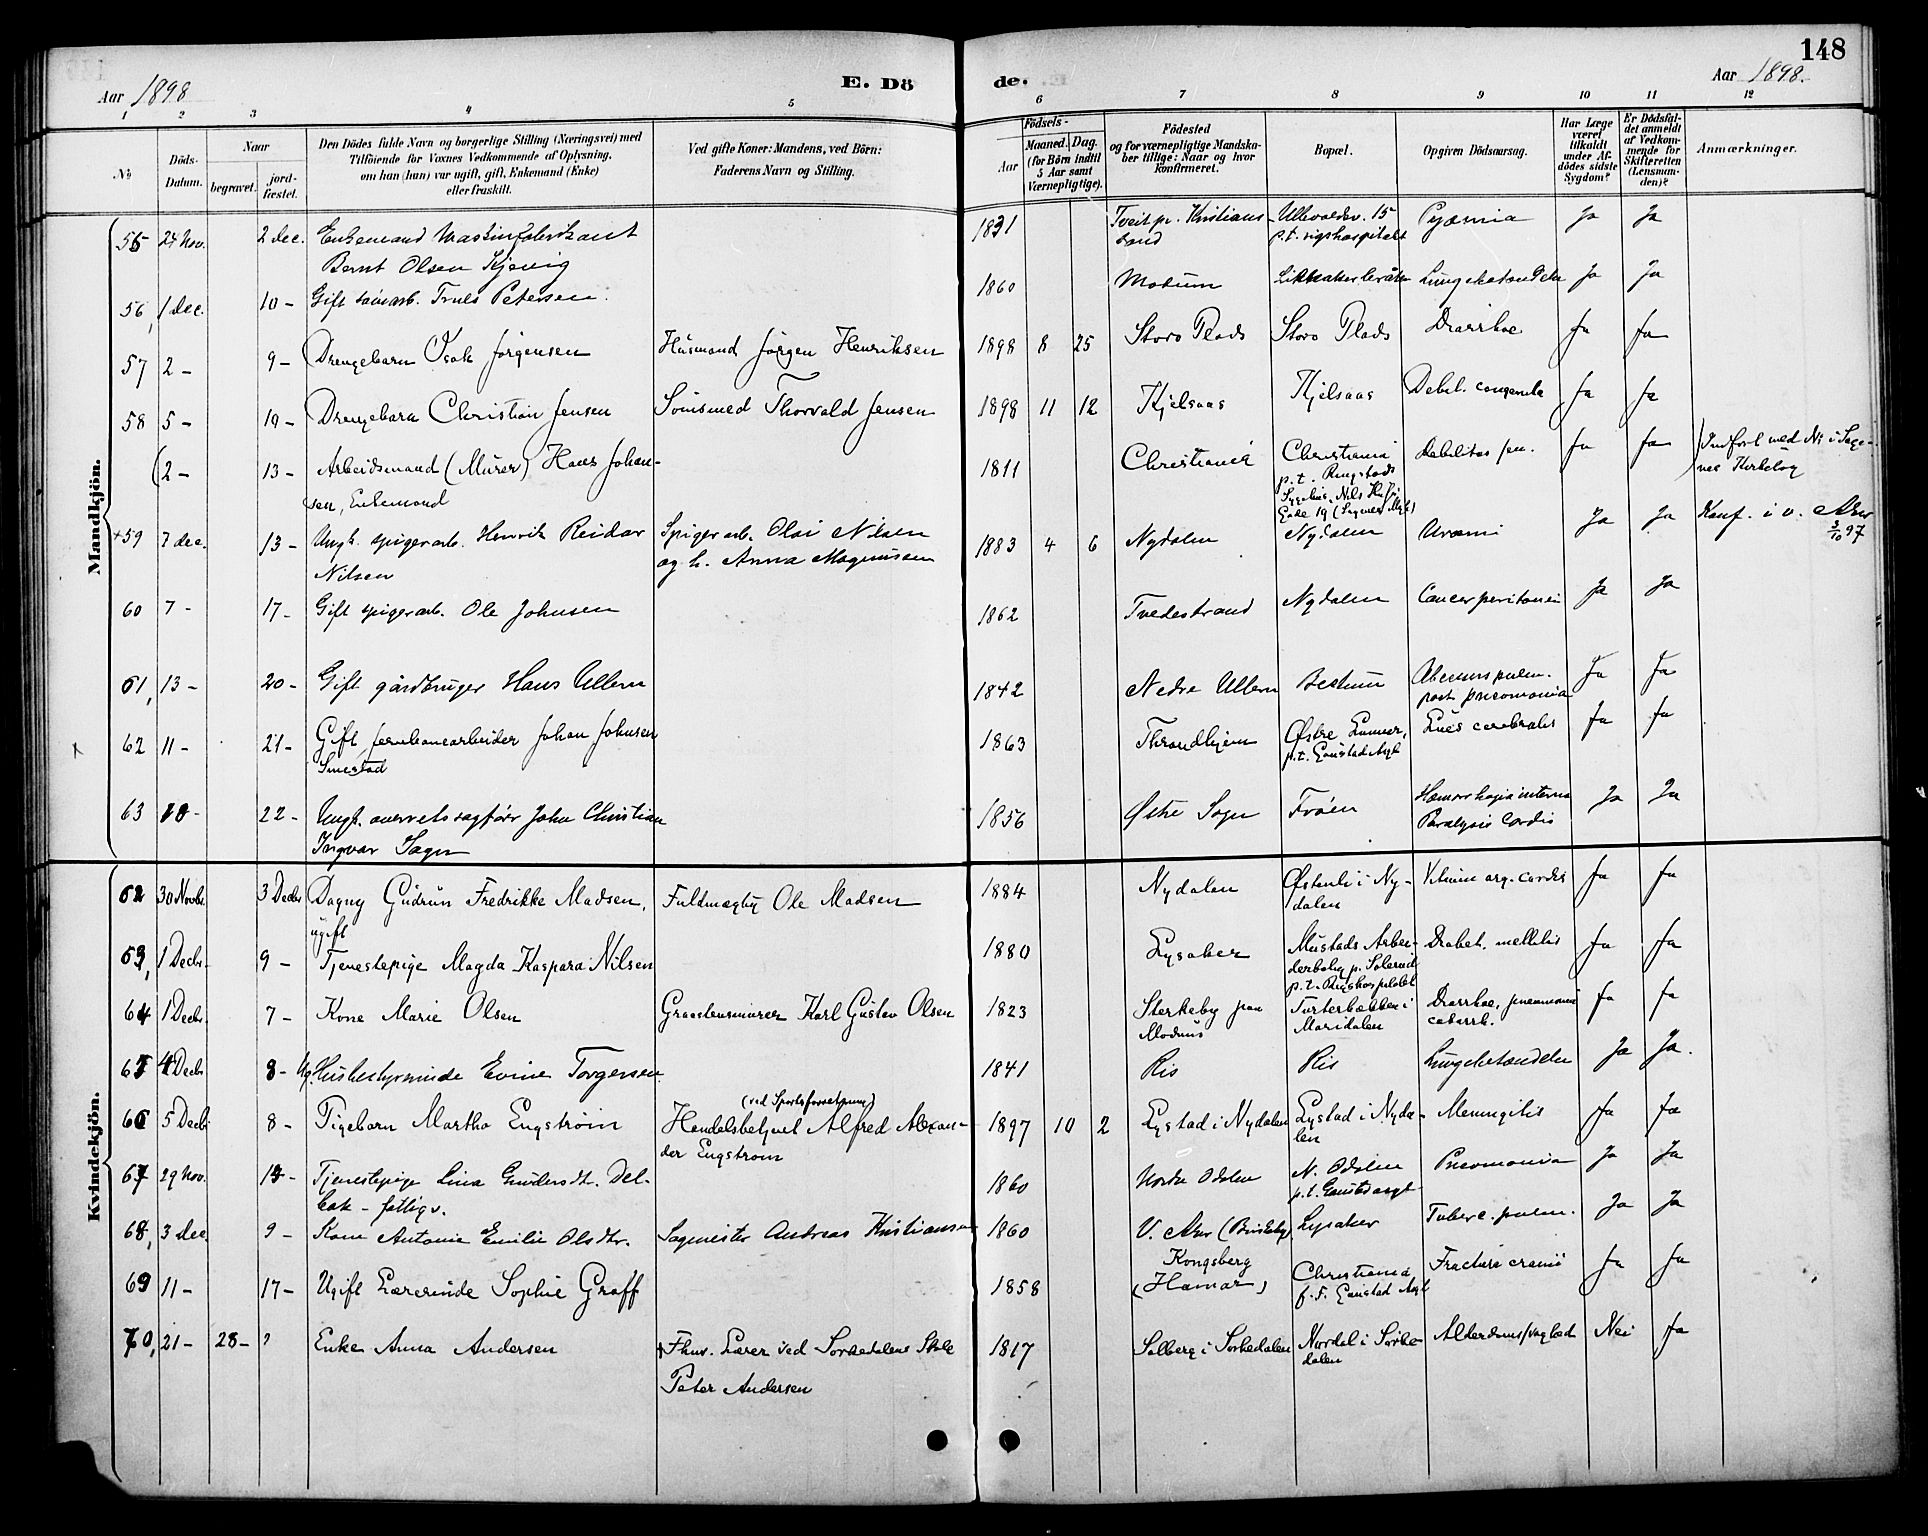 148
Aar 1898
E. Dö
de.
Aar 1898.
1 2 3 4 5 6 7 8 9 10 11 12
No
Döds-
Datum.
Naar
begravet.
jord-
fæstet.
Den Dödes fulde Navn og borgerlige Stilling (Næringsvei) med
Tilföiende for Voxnes Vedkommende af Oplysning,
om han (hun) var ugift, gift, Enkemand (Enke)
eller fraskilt.
Ved gifte Koner: Mandens, ved Börn:
Faderens Navn og Stilling.
Födsels-
Aar
Maaned. Dag.
(for Börn indtil
5 Aar samt
Værnepligtige).
Födested
og for værnepligtige Mandska-
ber tillige: Naar og hvor
konfirmeret.
Bopæl.
Opgiven Dödsaarsag.
Har Læge
været
tilkaldt
under Af-
dödes sidste
Sygdom?
Er Dödsfal-
det anmeldt
af Vedkom-
mende for
Skifteretten
(Lensman-
den)?
Anmærkninger.
Mandkjön.
55 24 Nov. 2 Dec. Enkemand Maskinfabrikant 1831 Tveit pr. Kristians- Ullevoldsv. 15 Pyæmia Ja Ja
Bernt Olsen Kjevig sand p.t. rigshospitalet
56, 1 dec. 10 - Gift Truls Petersen. 1860 Modum Lilleaker Lungebetændelse Ja Ja
57 2 - 9 - Drengebarn Isak Jørgensen Husmand Jørgen Henriksen 1898 8 25 Storo Plads Storo Plads Diarrhoe Ja Ja
58 5 - 19 - Drengebarn Christian Jensen Thorvald Jensen 1898 11 12 Kjelsaas Kjelsaas Debil. congenita Ja Ja
(2 - 13 - Arbeidsmand (Murer) Hans Johan- 1811 Christiania Christiania Debilitas sen. Ja Ja Indført med No i Sage-
sen, Enkemand p.t. Ringstads nes Kirkebog
Gade 19
+59 7 dec. 13 - Ungk. spigerarb. Henrik Reidar Spigerarb. Olai Nilsen 1883 4 6 Nydalen Nydalen Uræmi Ja Ja Konf. i v. Aker
Nilsen og h. Anna Magnussen 3/10 97
60 7 - 17 - Gift spigerarb. Ole Johnsen 1862 Tvedestrand Nydalen Cancer peritonei Ja Ja
61, 13 - 20 - Gift gårdbruger Hans Ullern 1842 Nedre Ullern Bestum Abcessus pulm. Ja Ja
post pneumonia
62 11 - 21 - Gift jernbanearbeider Johan Johnsen 1863 Throndhjem Østre Lues cerebralis Ja Ja
Smestad p.t. Gaustad Asyl
63 10 - 22 - Ungk. overretssagfører John Christian 1856 Østre Sogn Frøen Hæmorrhagia interna Ja Ja
Ingvar Sagen Paralysis Cordis
Kvindekjön.
62 30 Novbr. 3 Decbr Dagny Gudrun Fredrikke Madsen, Fuldmægtig Ole Madsen 1884 Nydalen Østenli i Ny- Vitium org. cordis Ja Ja
ugift dalen
63, 1 Decbr. 9 - Tjenestepige Magda Kaspara Nilsen 1880 Lysaker Mustads Arbei- Diabet. mellitis Ja Ja
derbolig p.
p.t. Rigshospitalet
64 1 Decbr. 7 - Kone Marie Olsen Graastensmurer Karl Gustav Olsen 1823 Sterkeby paa Turterbakken i Diarrhoe, pneumoni Ja Ja
Modum Maridalen catarrh.
65 4 Decbr 8 - Ug. Husbestyrerinde Evine Torgersen. 1841 Ris Ris Lungebetændelse Ja Ja.
(ved Sportsforretning)
66 5 Decbr 8 - Pigebarn Martha Engstrøm Handelsbetjent Alfred Alexan- 1897 10 2 Lystad i Nydalen Lystad i Nyda- Meningitis Ja Ja
der Engstrøm len
67 29 Nov. Tjenestepige Lina Gundersdt. Del- 1860 Nordre Odalen N. Odalen Pneumonia Ja Ja
bak - fattigv. p.t. Gaustad asyl
68, 3 dec. 9 - Kone Antonie Emilie Olsdtr. Sagmester Andreas Kristiansen 1860 V. Aker (Briskeby) Lysaker Tuberc. pulm. Ja Ja
69 11 - 17 - Ugift Lærerinde Sophie Graff 1858 Kongsberg Christiania Fractura cranii Ja Ja
(Hamar) Gaustad Asyl
70, 21 - 28 - ? Enke Anna Andersen Fhv. Lærer ved Sørkedalens Skole 1817 Solberg i Sørkedalen Nordal i Sørke- Alderdomssvaghed Nei Ja
Peter Andersen dalen